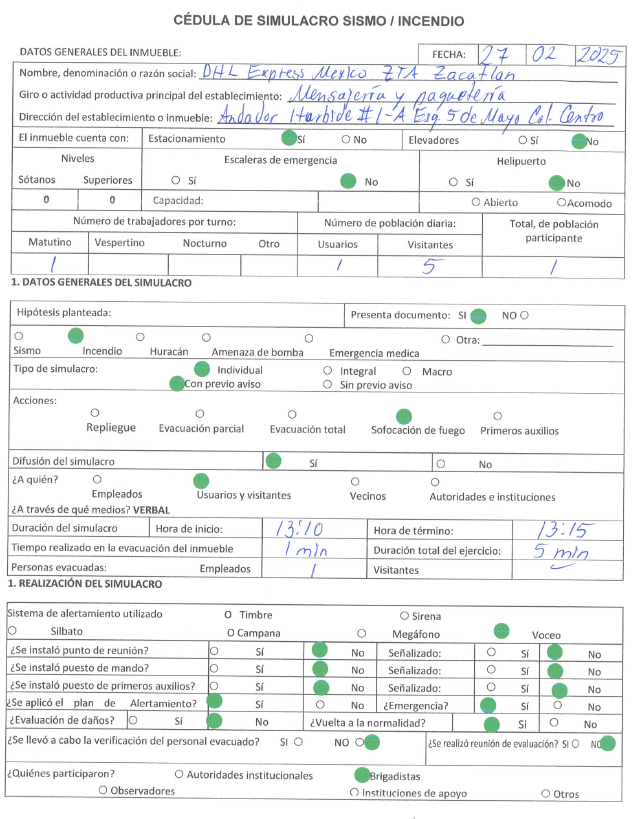 CÉDULA DE SIMULACRO SISMO / INCENDIO
DATOS GENERALES DEL INMUEBLE: FECHA: 27 02 2025
Nombre, denominación o razón social: DHL Express Mexico ZTA Zacatlan
Giro o actividad productiva principal del establecimiento: Mensajería y paquetería
Dirección del establecimiento o inmueble: Andador Iturbide #1-A Esq. 5 de Mayo Col. Centro
El inmueble cuenta con: Estacionamiento Sí No Elevadores Sí No
Niveles Escaleras de emergencia Helipuerto
Sótanos Superiores Sí No Sí No
0 0 Capacidad: Abierto Acomodo
Número de trabajadores por turno: Número de población diaria: Total, de población participante
Matutino Vespertino Nocturno Otro Usuarios Visitantes
1 1 5 1
1. DATOS GENERALES DEL SIMULACRO
Hipótesis planteada: Presenta documento: SI NO
Sismo Incendio Huracán Amenaza de bomba Emergencia medica Otra:
Tipo de simulacro: Individual Integral Macro
Con previo aviso Sin previo aviso
Acciones:
Repliegue Evacuación parcial Evacuación total Sofocación de fuego Primeros auxilios
Difusión del simulacro Sí No
¿A quién? Empleados Usuarios y visitantes Vecinos Autoridades e instituciones
¿A través de qué medios? VERBAL
Duración del simulacro Hora de inicio: 13:10 Hora de término: 13:15
Tiempo realizado en la evacuación del inmueble 1 min Duración total del ejercicio: 5 min
Personas evacuadas: Empleados 1 Visitantes
1. REALIZACIÓN DEL SIMULACRO
Sistema de alertamiento utilizado Timbre Sirena
Silbato Campana Megáfono Voceo
¿Se instaló punto de reunión? Sí No Señalizado: Sí No
¿Se instaló puesto de mando? Sí No Señalizado: Sí No
¿Se instaló puesto de primeros auxilios? Sí No Señalizado: Sí No
¿Se aplicó el plan de Alertamiento? Sí No ¿Emergencia? Sí No
¿Evaluación de daños? Sí No ¿Vuelta a la normalidad? Sí No
¿Se llevó a cabo la verificación del personal evacuado? SI NO ¿Se realizó reunión de evaluación? SI NO
¿Quiénes participaron? Autoridades institucionales Brigadistas
Observadores Instituciones de apoyo Otros